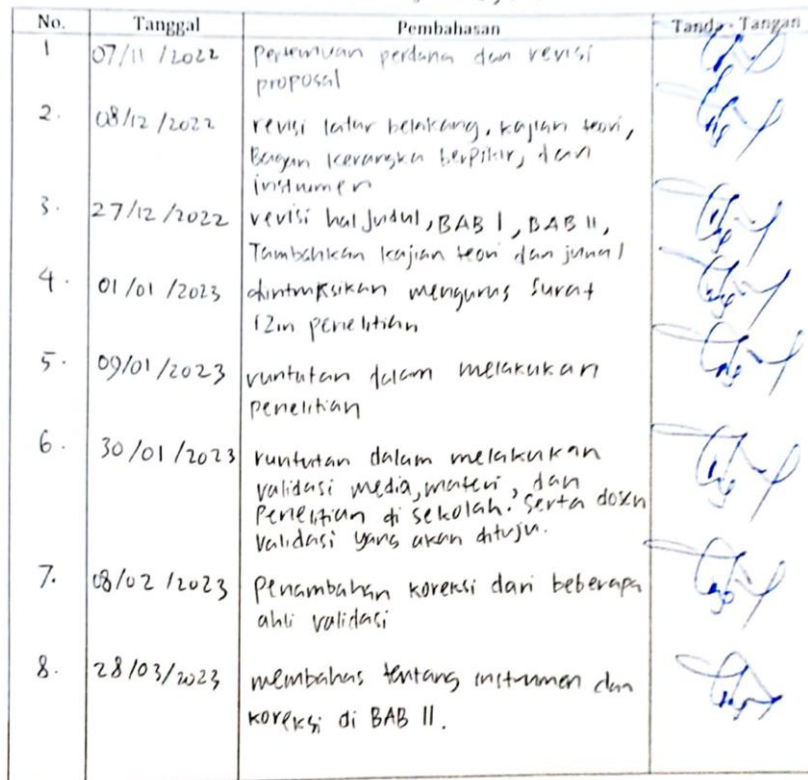 No. Tanggal Pembahasan Tanda - Tangan
1 07/11/2022 Pertemuan perdana dan revisi
proposal
2. 08/12/2022 revisi latar belakang, kajian teori,
Bagan kerangka berpikir, dan
instrumen
3. 27/12/2022 revisi hal judul, BAB I, BAB II,
Tambahkan kajian teori dan jurnal
4. 01/01/2023 diintruksikan mengurus surat
izin penelitian
5. 09/01/2023 runtutan dalam melakukan
penelitian
6. 30/01/2023 runtutan dalam melakukan
validasi media, materi, dan
Penelitian di sekolah. serta dosen
validasi yang akan dituju.
7. 08/02/2023 Penambahan koreksi dari beberapa
ahli validasi
8. 28/03/2023 membahas tentang instrumen dan
koreksi di BAB II.